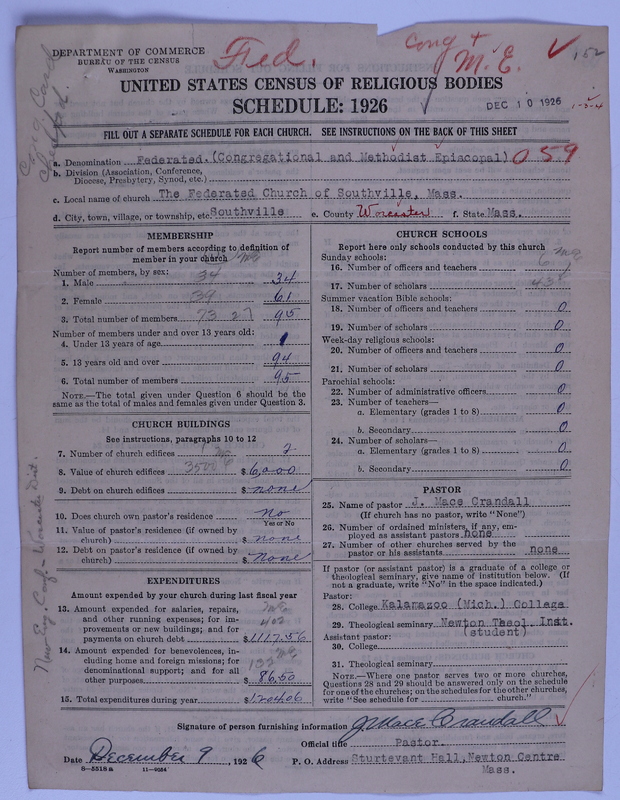 DEPARTMENT OF COMMERCE
BUREAU OF THE CENSUS
WASHINGTON
Fed.
Cong +
M.E.
152
UNITED STATES CENSUS OF RELIGIOUS BODIES
SCHEDULE: 1926
DEC 10 1926
1-3-4
FILL OUT A SEPARATE SCHEDULE FOR EACH CHURCH. SEE INSTRUCTIONS ON THE BACK OF THIS SHEET
a. Denomination Federated. (Congregational and Methodist Episcopal) 059
b. Division (Association, Conference,
Diocese, Presbytery, Synod, etc.)
c. Local name of church The Federated Church of Southville, Mass.
d. City, town, village, or township, etc. Southville e. County Worcester f. State Mass.
MEMBERSHIP
Report number of members according to definition of
member in your church
Number of members, by sex:
1. Male 34 34
2. Female 39 61
3. Total number of members 73 27 95
Number of members under and over 13 years old:
4. Under 13 years of age 1
5. 13 years old and over 94
6. Total number of members 95
NOTE.—The total given under Question 6 should be
the same as the total of males and females given under Question 3.
CHURCH BUILDINGS
See instructions, paragraphs 10 to 12
7. Number of church edifices 2
8. Value of church edifices 3500 $ 6,000
9. Debt on church edifices $ none
10. Does church own pastor's residence No
Yes or No
11. Value of pastor's residence (if owned by
church) $ none
12. Debt on pastor's residence (if owned by
church) $ None
EXPENDITURES
Amount expended by your church during last fiscal year
13. Amount expended for salaries, repairs,
and other running expenses; for im-
provements or new buildings; and for
payments on church debt $ 1117.56
14. Amount expended for benevolences, in-
cluding home and foreign missions; for
denominational support; and for all
other purposes $ 86.50
15. Total expenditures during year $ 1204.06
CHURCH SCHOOLS
Report here only schools conducted by this church
Sunday schools:
16. Number of officers and teachers 6
17. Number of scholars 43
Summer vacation Bible schools:
18. Number of officers and teachers 0
19. Number of scholars 0
Week-day religious schools:
20. Number of officers and teachers 0
21. Number of scholars 0
Parochial schools:
22. Number of administrative officers 0
23. Number of teachers—
a. Elementary (grades 1 to 8) 0
b. Secondary 0
24. Number of scholars—
a. Elementary (grades 1 to 8) 0
b. Secondary 0
PASTOR
25. Name of pastor J. Mace Crandall
(If church has no pastor, write "None")
26. Number of ordained ministers, if any, em-
ployed as assistant pastors none
27. Number of other churches served by the
pastor or his assistants none
If pastor (or assistant pastor) is a graduate of a college or
theological seminary, give name of institution below. (If
not a graduate, write "No" in the space indicated.)
Pastor:
28. College Kalamazoo (Mich.) College
29. Theological seminary Newton Theol. Inst.
(student)
Assistant pastor:
30. College
31. Theological seminary
NOTE.—Where one pastor serves two or more churches,
Questions 28 and 29 should be answered only on the schedule
for one of the churches; on the schedules for the other churches,
write "See schedule for church."
Signature of person furnishing information J. Mace Crandall
Official title Pastor.
Date December 9, 1926 P. O. Address Sturtevant Hall, Newton Centre
Mass.
8-5518a 11-9054